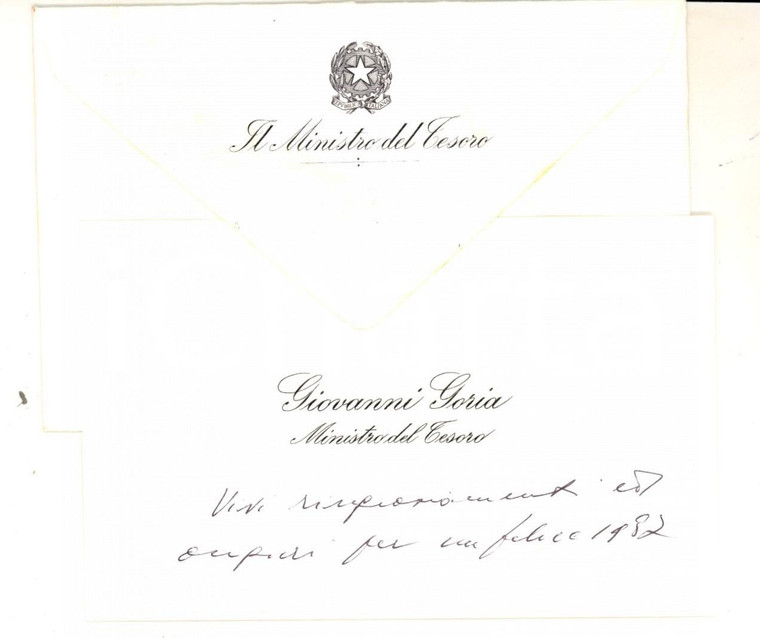 Il Ministro del Tesoro
Giovanni Goria
Ministro del Tesoro
Vivi ringraziamenti ed
auguri per un felice 1987